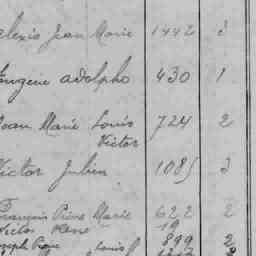 Alexis Jean Marie 1442 2
Eugène Adolphe 430 1
Jean Marie Louis 724 2
Victor
Victor Julien 1085 3
François Pierre Marie 622 2
Victor René 19
Joseph Pierre Louis 899 2